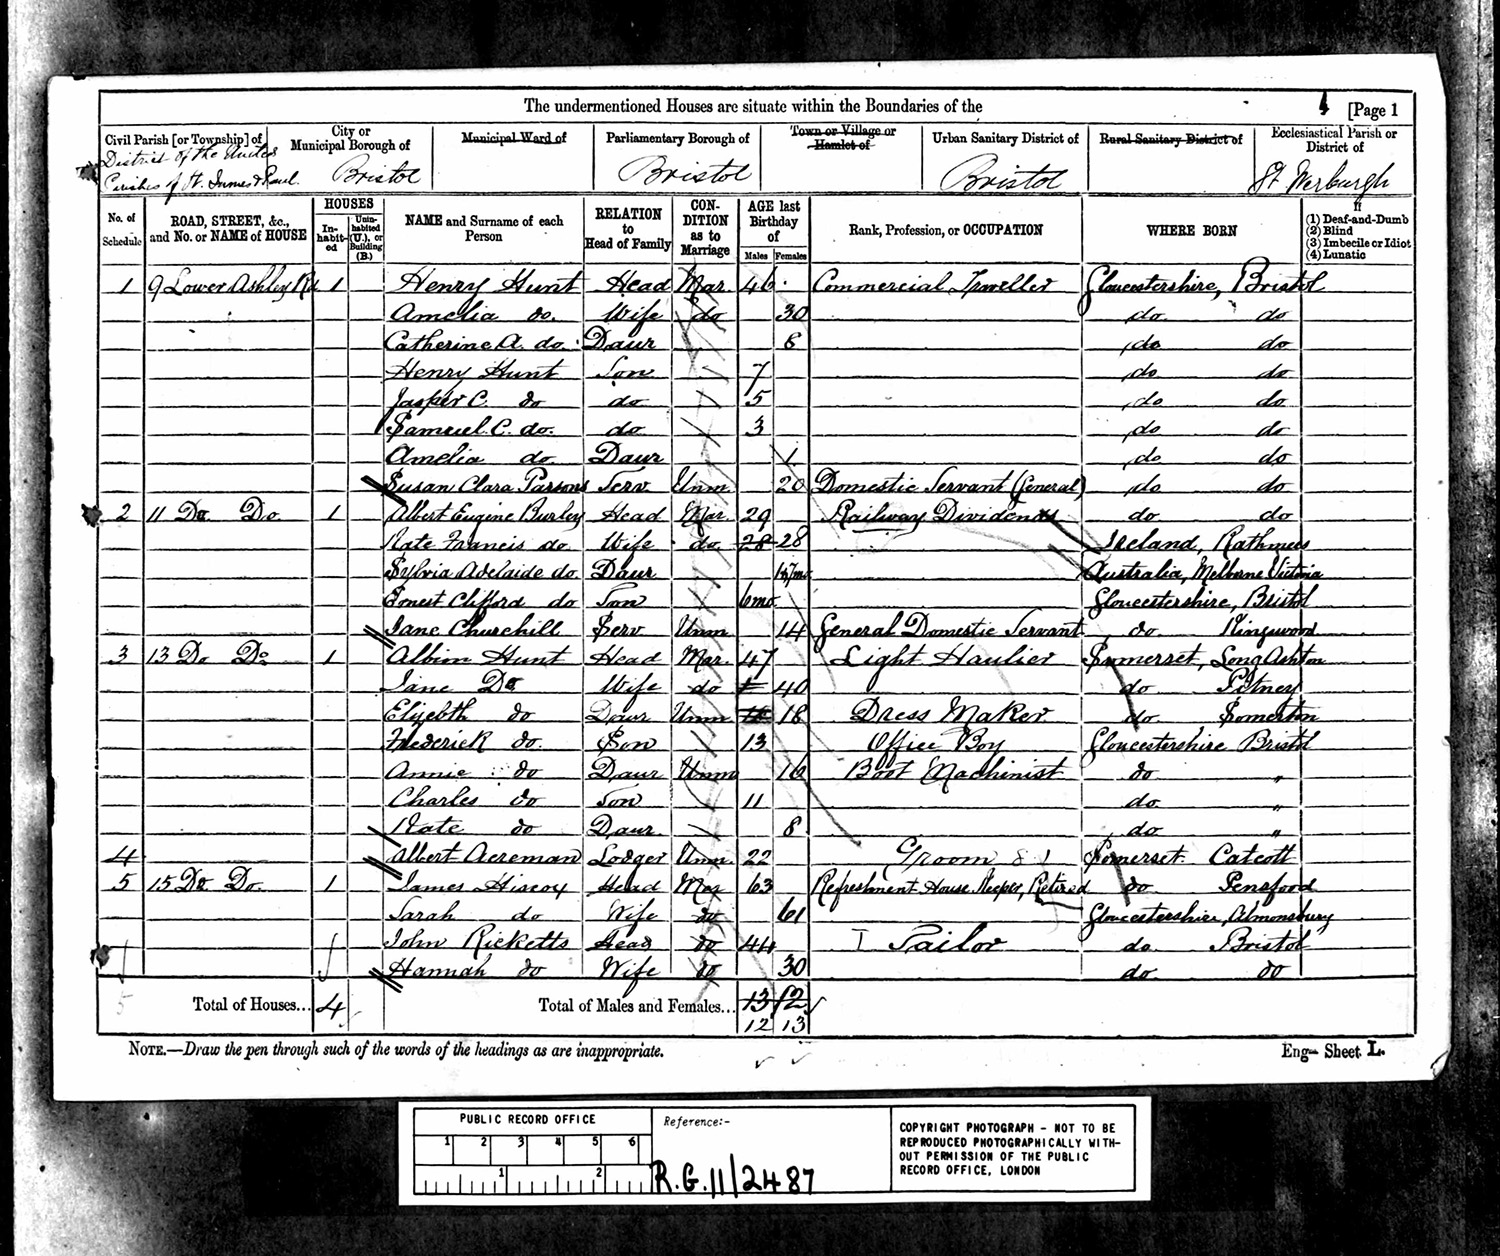 The undermentioned Houses are situate within the Boundaries of the
[Page 1
Civil Parish [or Township] of
District of the United
Parishes of St. James & Paul
City or Municipal Borough of
Bristol
Municipal Ward of
Parliamentary Borough of
Bristol
Town or Village or Hamlet of
Urban Sanitary District of
Bristol
Rural Sanitary District of
Ecclesiastical Parish or District of
St. Werburgh
No. of Schedule
ROAD, STREET, &c., and No. or NAME of HOUSE
HOUSES
In-habit-ed
Unin-habited (U.), or Building (B.)
NAME and Surname of each Person
RELATION to Head of Family
CON-DITION as to Marriage
AGE last Birthday of
Males Females
Rank, Profession, or OCCUPATION
WHERE BORN
If
(1) Deaf-and-Dumb
(2) Blind
(3) Imbecile or Idiot
(4) Lunatic
1 9 Lower Ashley Rd 1 Henry Hunt Head Mar 46 Commercial Traveller Gloucestershire, Bristol
Amelia do. Wife do 30 do do
Catherine A. do. Daur 8 do do
Henry Hunt Son 7 do do
Jasper C. do do 5 do do
Samuel C. do. do 3 do do
Amelia do Daur 1 do do
Susan Clara Parsons Serv. Unm 20 Domestic Servant (General) do do
2 11 Do Do 1 Albert Eugine Burley Head Mar 29 Railway Dividends do do
Kate Francis do Wife do 28 28 Ireland, Rathmies
Sylvia Adelaide do Daur Australia, Melborne Victoria
Ernest Clifford do Son 6mo Gloucestershire, Bristol
Jane Churchill Serv Unm 14 General Domestic Servant do Kingswood
3 13 Do Do 1 Albion Hunt Head Mar 47 Light Haulier Somerset, Long Ashton
Jane Do Wife do 40 do Pitney
Elizebth do Daur Unm 18 Dress Maker do Somerton
Frederick do. Son 13 Office Boy Gloucestershire Bristol
Annie do Daur Unm 16 Boot Machinist do "
Charles do Son 11 do "
Kate do Daur 8 do "
4 Albert Acreman Lodger Unm 22 Groom Somerset Catcott
5 15 Do Do. 1 James Hiscox Head Mar 63 Refreshment House Keeper, Retired do Pensford
Sarah do Wife do 61 Gloucestershire, Almonsbury
John Ricketts Head do 44 Tailor do Bristol
Hannah do Wife do 30 do do
5 Total of Houses... 4 Total of Males and Females... 13 12
12 13
NOTE.—Draw the pen through such of the words of the headings as are inappropriate.
Eng— Sheet L.
PUBLIC RECORD OFFICE
1 2 3 4 5 6
1 2
Reference:-
R.G. 11/2487
COPYRIGHT PHOTOGRAPH - NOT TO BE
REPRODUCED PHOTOGRAPHICALLY WITH-
OUT PERMISSION OF THE PUBLIC
RECORD OFFICE, LONDON